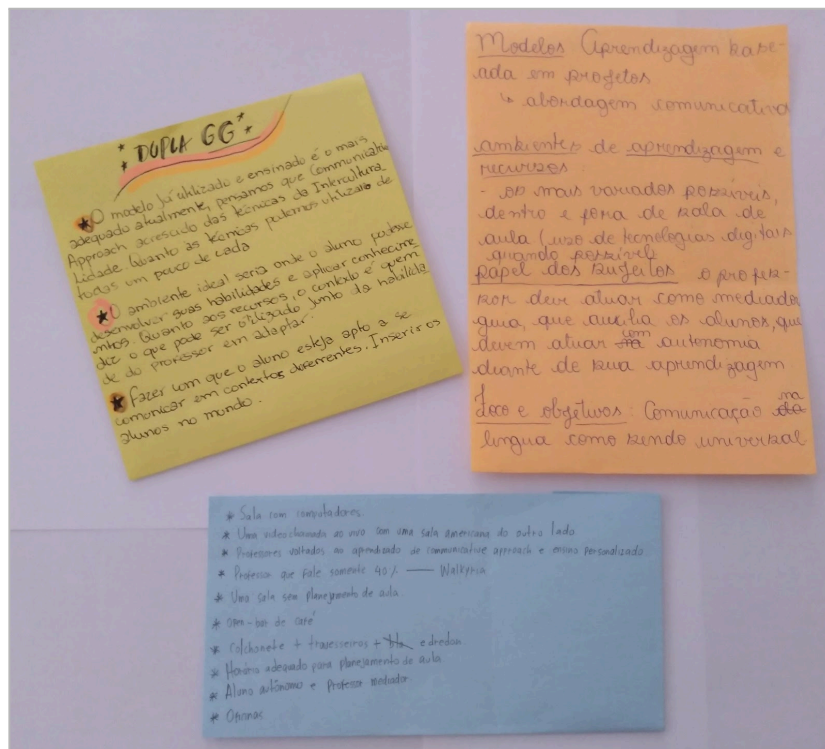 DUPLA GG
O modelo já utilizado e ensinado é o mais
adequado atualmente, pensamos que Communicative
Approach acrescido das técnicas da Intercultura
lidade. Quanto as técnicas podemos utilizar de
todas um pouco de cada
O ambiente ideal seria onde o aluno pudesse
desenvolver suas habilidades e aplicar conhecime
ntos. Quanto aos recursos, o contexto é quem
diz o que pode ser utilizado junto da habilida
de do professor em adaptar.
Fazer com que o aluno esteja apto a se
comunicar em contextos diferentes. Inserir os
alunos no mundo.
Modelos Aprendizagem base-
ada em projetos
↳ abordagem comunicativa
ambientes de aprendizagem e
recursos:
- os mais variados possíveis,
dentro e fora de sala de
aula (uso de tecnologias digitais
quando possível
papel dos sujeitos o profes-
sor deve atuar como mediador,
guia, que auxilia os alunos, que
devem atuar com autonomia
diante de sua aprendizagem
foco e objetivos: Comunicação na
língua como sendo universal
* Sala com computadores.
* Uma videochamada ao vivo com uma sala americana do outro lado
* Professores voltados ao aprendizado de communicative approach e ensino personalizado.
* Professor que fale somente 40% — Walkyria
* Uma sala sem planejamento de aula.
* open-bar de café
* Colchonete + travesseiros + edredon
* Horário adequado para planejamento de aula
* Aluno autônomo e Professor mediador
* Oficinas